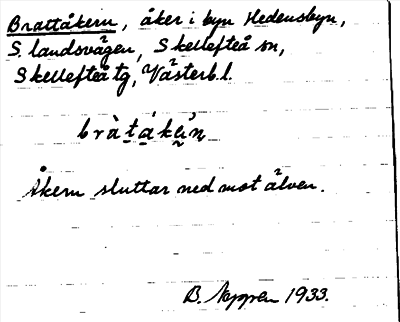 Brattåkern, åker i byn Hedensbyn,
S. landsvägen, Skellefteå sn,
Skellefteå tg, Västerb. l.
Åkern sluttar ned mot älven.
B. 1933.